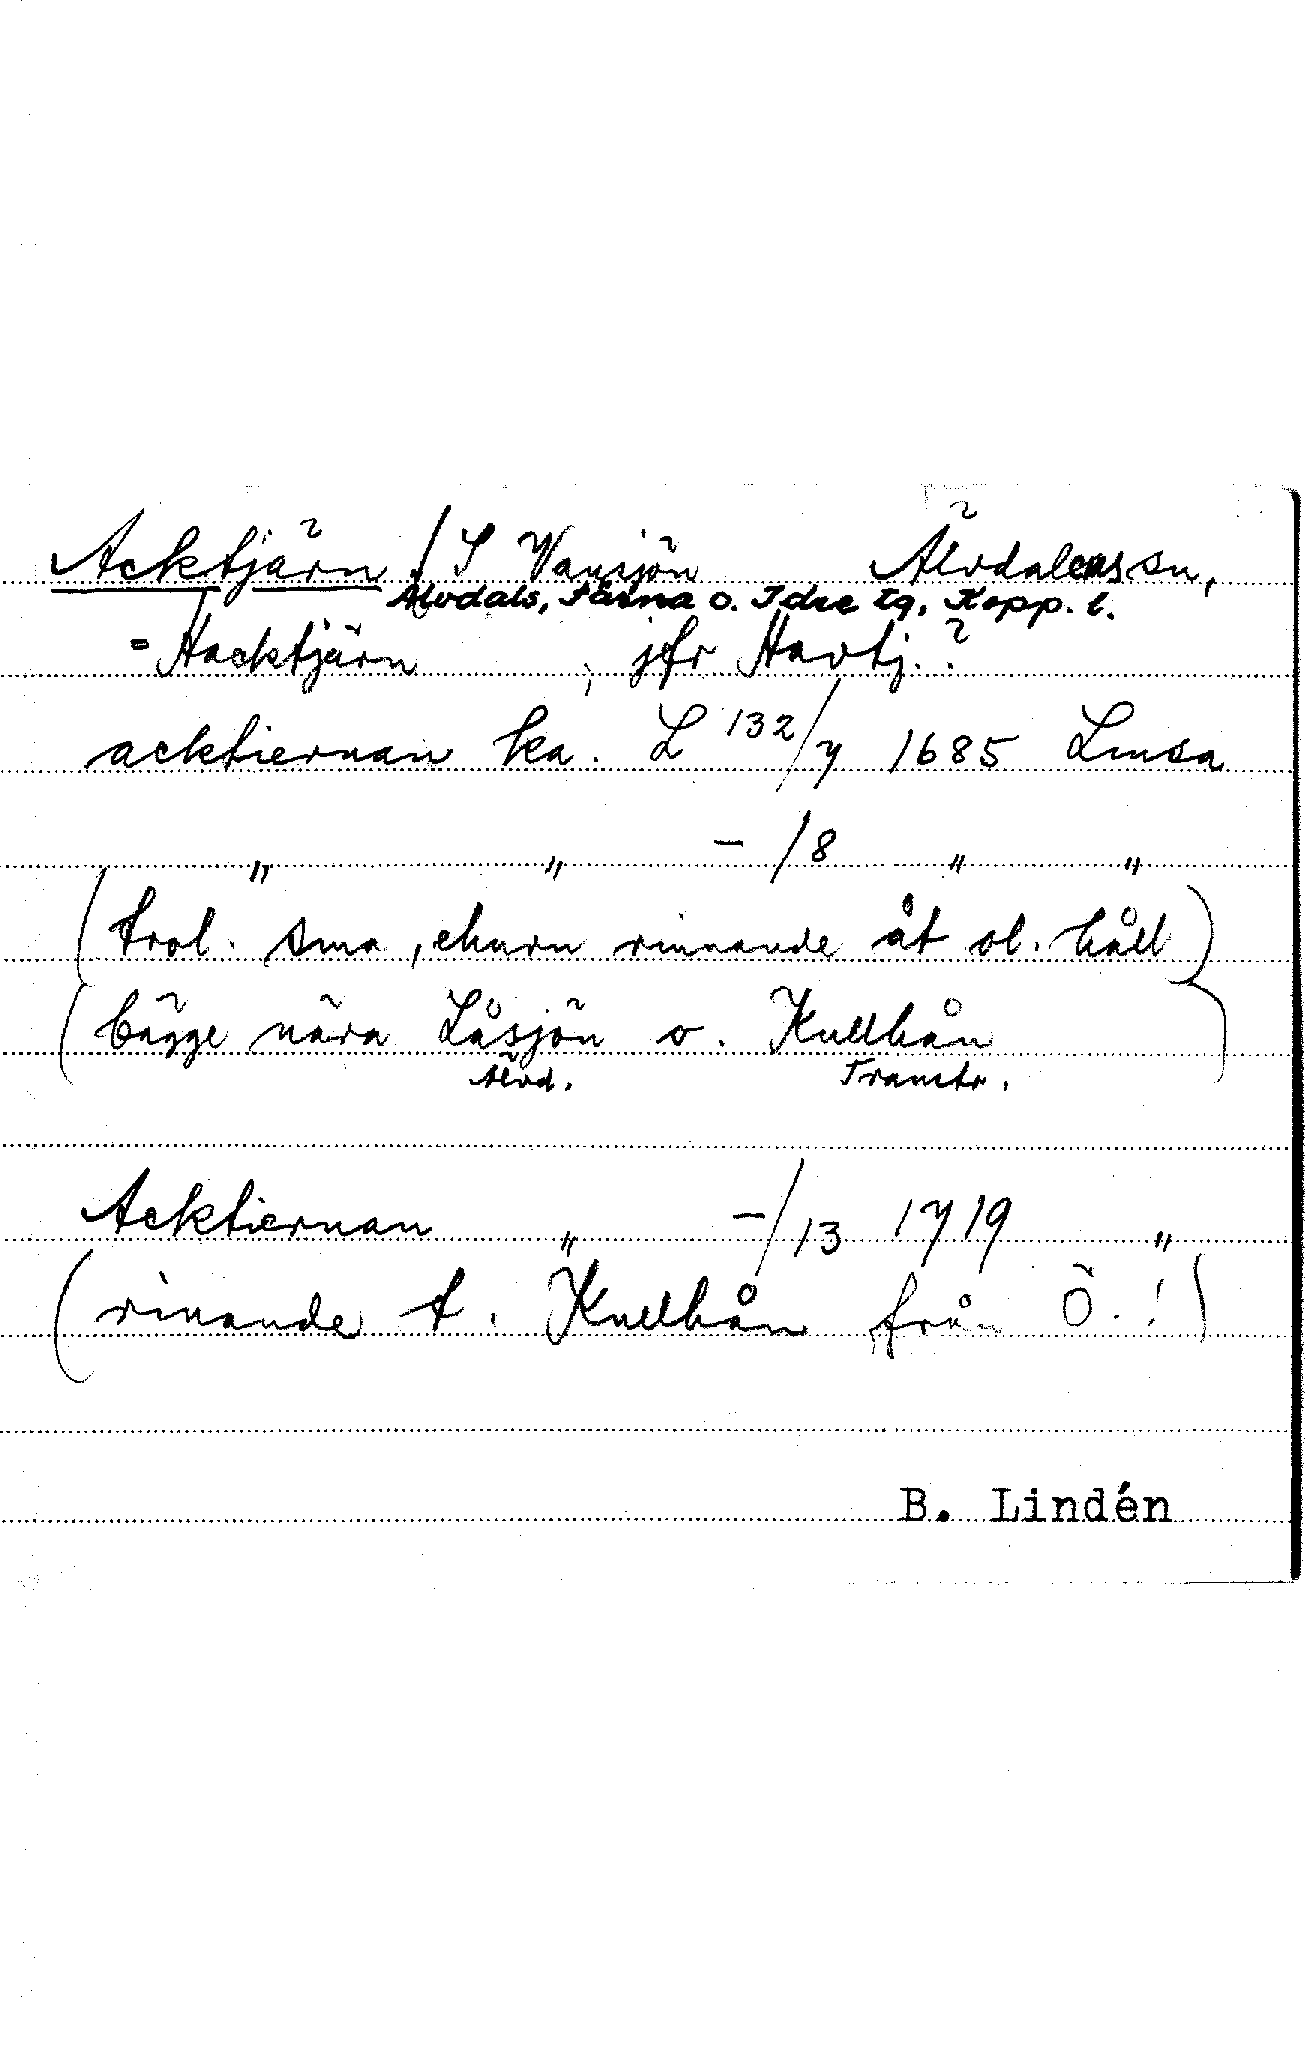 Acktjärn / S Vansjön Älvdalens sn,
Älvdals, Särna o. Idre tg, Kopp. l.
= Hacktjärn ; jfr Havtj.?
acktiernan ka. L 132/7 1685 Lmsa
" " - /8 " "
(trol. sma, ehuru rinnande åt ol. håll)
(bägge nära Låsjön o. Kullhån)
Älvd. Transtr.
Acktiernan " -/13 1719 "
(rinande t. Kullhån från Ö.!)
B. Lindén